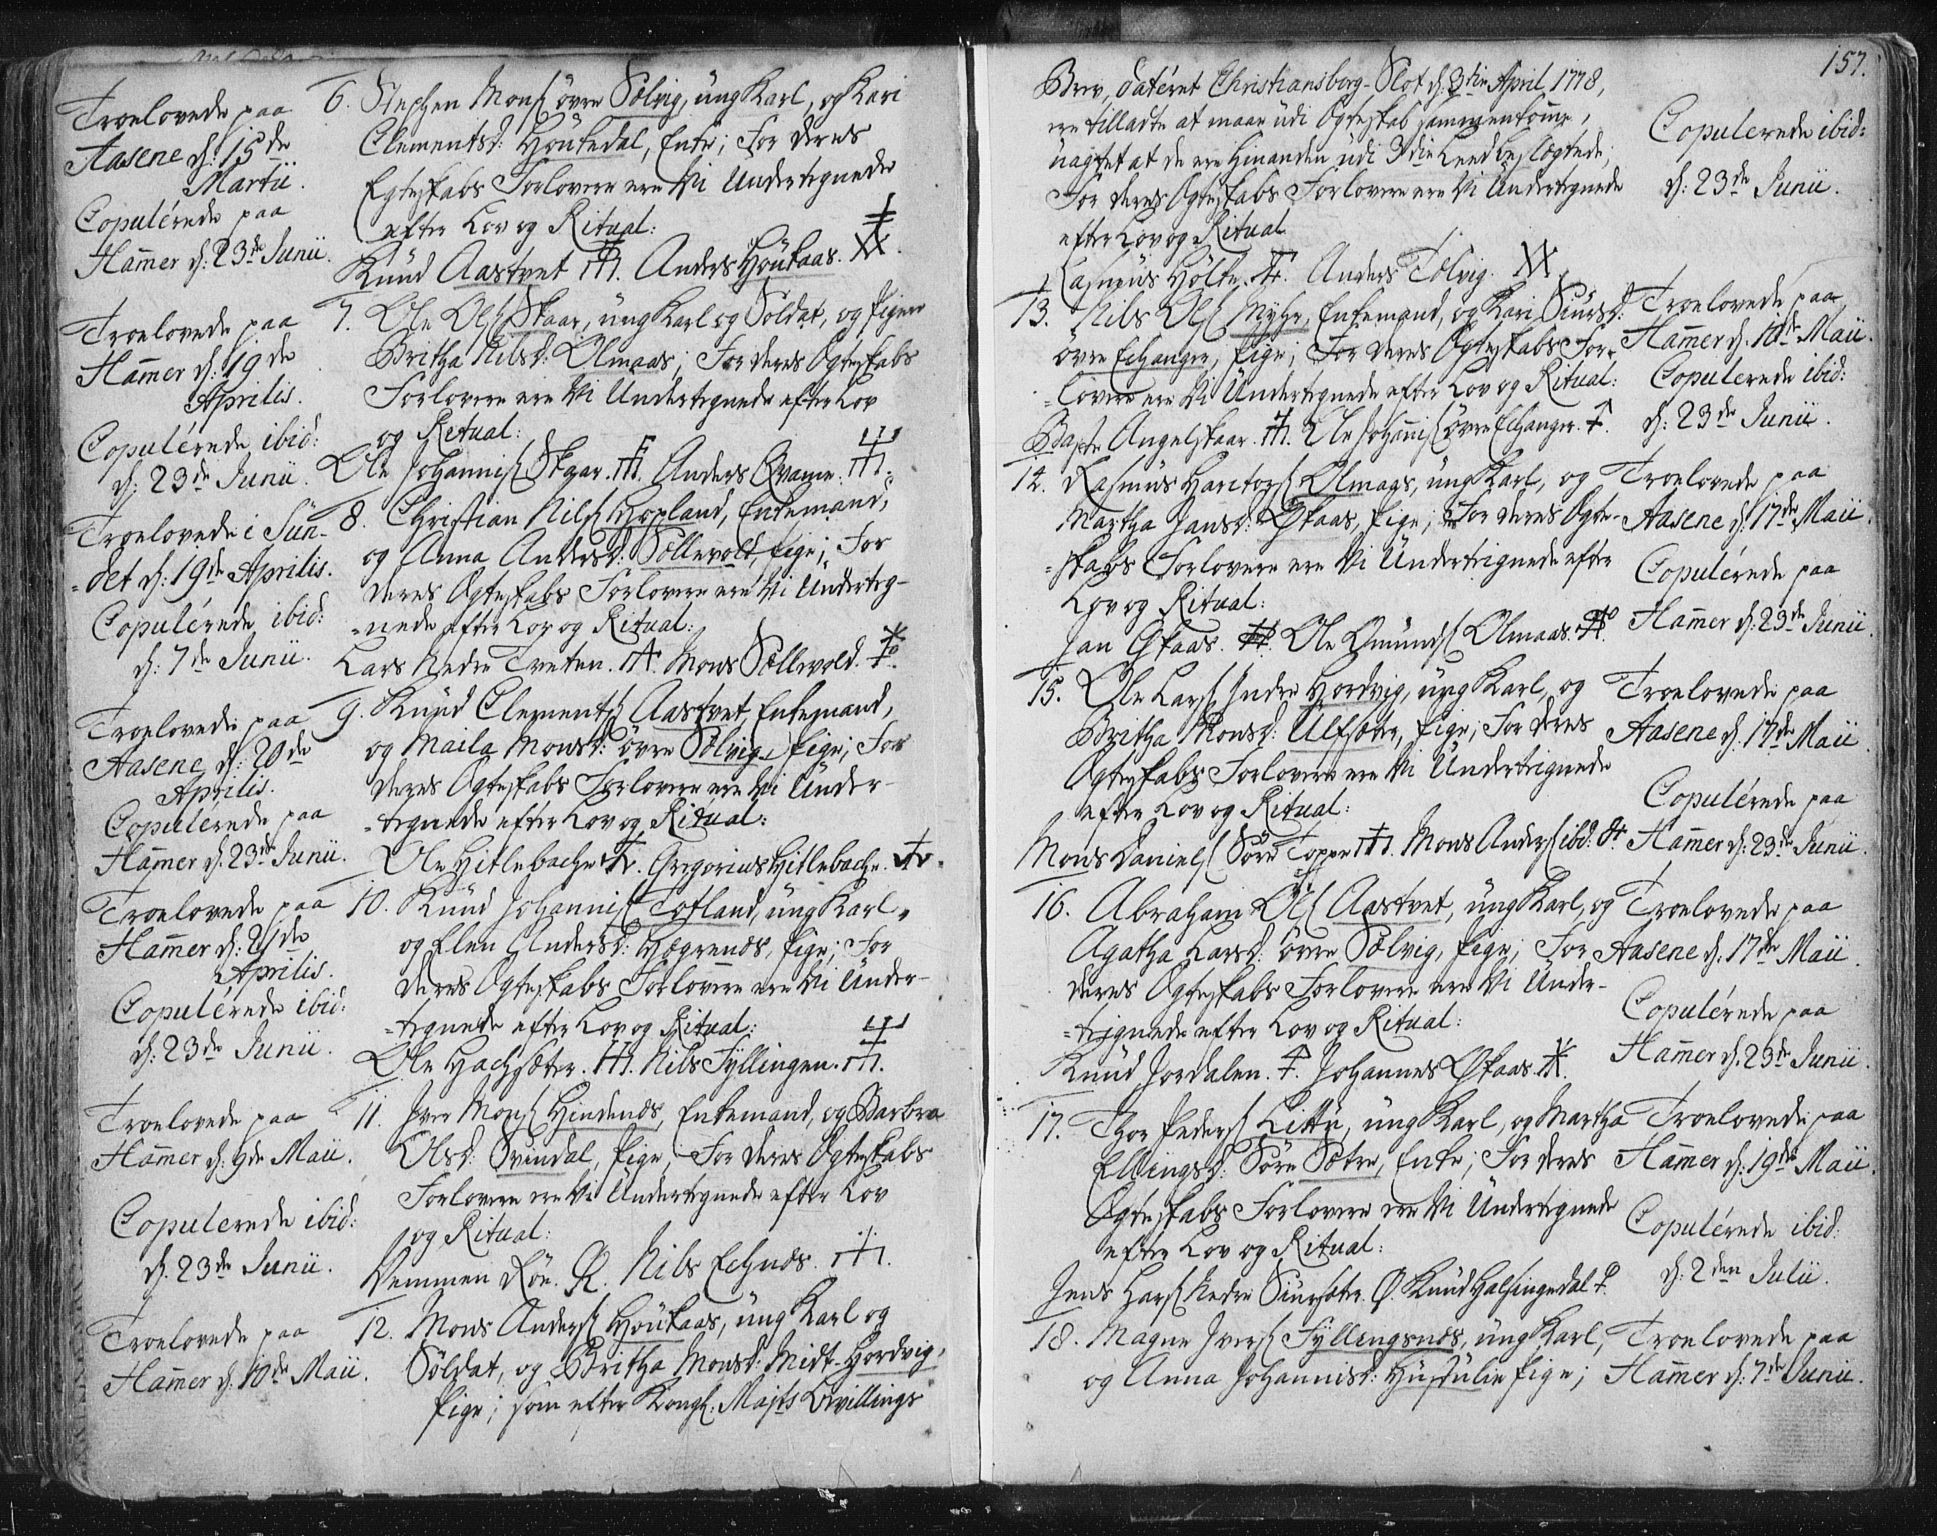 Troelovede paa
Aasene d: 15de
Martii.
Copulérede paa
Ham̄er d: 23de Junii.
6. Stephen Mons: øvre Sølvig, ung Karl, og Kari
Clementsd: Houkedal, Enke; For deres
Egteskabs Forlovere ere Vi Undertegnede
efter Lov og Ritual:
Knud Aastvet. Anders Houkaas.
Troelovede paa
Ham̄er d: 19de
Aprilis.
Copulérede ibid:
d: 23de Junii.
7. Ole Ols: Skaar, ung Karl og Soldat, og pigen
Britha Nilsd: Olmaas; For deres Ægteskabs
Forlovere ere Vi Undertegnede efter Lov
og Ritual:
Ole Johannis: Skaar. Anders Qvame.
Troelovede i Sun-
-det d: 19de Aprilis.
Copulérede ibid:
d: 7de Junii.
8. Christian Nils: Hopland, Enkemand,
og Anna Andersd: Sællevold, pige; For
deres Ægteskabs Forlovere ere Vi Underteg-
-nede efter Lov og Ritual:
Lars Nedre Tveten. Mons Sællevold.
Troelovede paa
Aasene d: 20de
Aprilis.
Copulérede paa
Ham̄er d: 23de Junii.
9. Knud Clements: Aastvet, Enkemand,
og Maila Monsd: øvre Sølvig, pige; For
deres Ægteskabs Forlovere ere Vi Under-
-tegnede efter Lov og Ritual:
Ole Hitlebache. Gregorius Hitlebache.
Troelovede paa
Ham̄er d: 21de
Aprilis.
Copulérede ibid:
d: 23de Junii.
10. Knud Johannis: Totland, ung Karl,
og Elen Andersd: Hægrenæs, pige; For
deres Ægteskabs Forlovere ere Vi Under-
-tegnede efter Lov og Ritual:
Ole Hachsæter. Nils Fyllingen.
Troelovede paa
Ham̄er d: 9de Maii.
Copulerede ibid:
d: 23de Junii.
11. Iver Mons: Hindenæs, Enkemand, og Barbra
Olsd: Svindal, pige, For deres Ægteskabs
Forlovere ere Vi Undertegnede efter Lov
og Ritual:
Vemmen Røe. Nils Echnæs.
Troelovede paa
Ham̄er d: 10de Maii.
12. Mons Anders: Houkaas, ung Karl og
Soldat, og Britha Monsd: Midt-Hordvig,
pige; som efter Kongl: Majts Bevillings
157.
Brev, datéret Christiansborg-Slot d: 3die April 1778,
ere tilladte at maae udi Ægteskab sammenkom̄e,
uagtet at de ere hinanden udi 3die Leed beslægtede;
For deres Ægteskabs Forlovere ere Vi Undertegnede
efter Lov og Ritual
Rasmus Holte. Anders Tolvig.
Copulérede ibid:
d: 23de Junii.
13. Nils Ols: Myhr, Enkemand, og Kari Siursd:
øvre Echanger, pige; For deres Ægteskabs For-
-lovere ere Vi Undertegnede efter Lov og Ritual:
Angelskaar. Ole Johannis: øvre Echanger.
Troelovede paa
Ham̄er d: 10de Maii.
Copulerede ibid:
d: 23de Junii.
14. Rasmus Olmaas, ung Karl, og
Martha Jansd: Øskaas, pige; For deres Ægte-
-skabs Forlovere ere Vi Undertegnede efter
Lov og Ritual:
Jan Øskaas. Ole Omunds: Olmaas.
Troelovede paa
Aasene d: 17de Maii.
Copulérede paa
Ham̄er d: 23de Junii.
15. Ole Lars: Indre Hordvig, ung Karl, og
Britha Monsd: Ulfsæter, pige; For deres
Ægteskabs Forlovere ere Vi Undertegnede
efter Lov og Ritual:
Mons Daniels: Søre Toppe. Mons Anders: ibd:
Troelovede paa
Aasene d: 17de Maii
Copulérede paa
Ham̄er d: 23de Junii.
16. Abraham Ols: Aastvet, ung Karl, og
Agatha Larsd: øvre Sølvig, pige; For
deres Ægteskabs Forlovere ere Vi Under-
-tegnede efter Lov og Ritual:
Knud Jordalen. Johannes Øskaas.
Troelovede paa
Aasene d: 17de Maii.
Copulérede paa
Ham̄er d: 23de Junii.
17. Thor Peders: Littu, ung Karl, og Martha
Ellingsd: Søre Sætre, Enke; For deres
Ægteskabs Forlovere ere Vi Undertegnede
efter Lov og Ritual:
Jens Lars: Nedre Siursæter. Knud Halsingedal.
Troelovede paa
Ham̄er d: 19de Maii.
Copulérede ibid:
d: 2den Julii.
18. Magne Ivers: Fyllingsnæs, ung Karl,
og Anna Johannisd: Husdulie pige;
Troelovede paa
Ham̄er d: 7de Junii.